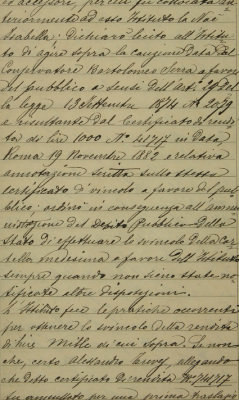 teriormente ad esso Istituto la Noè
Isabella. Dichiarò lecito all'Istitu-
to di agire sopra la cauzione data dal
Conservatore Bartolomeo Serra a favore
del pubblico a sensi dell'Art. 29 del-
la legge 13 Settembre 1874 N° 2079
e risultante dal Certificato di rendi-
ta di lire 1000 N° 41717 in data
Roma 19 Novembre 1882 e relativa
annotazione scritta sullo stesso
certificato di vincolo a favore del pub-
blico; ordinò in conseguenza all'ammi-
nistrazione del Debito Pubblico dello
Stato di effettuare lo svincolo della Car-
tella medesima a favore dell'Istituto
sempre quando non siano state no-
tificate altre disposizioni.
L'Istituto fece le pratiche occorrenti
per ottenere lo svincolo della rendita
di lire Mille di cui sopra. Se non
che, certo Alessandro allegando
che detto certificato di rendita N° 41717
fu aumentato per una prima